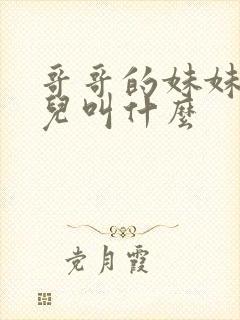 哥哥的妹妹
兒叫什麼
党月霞